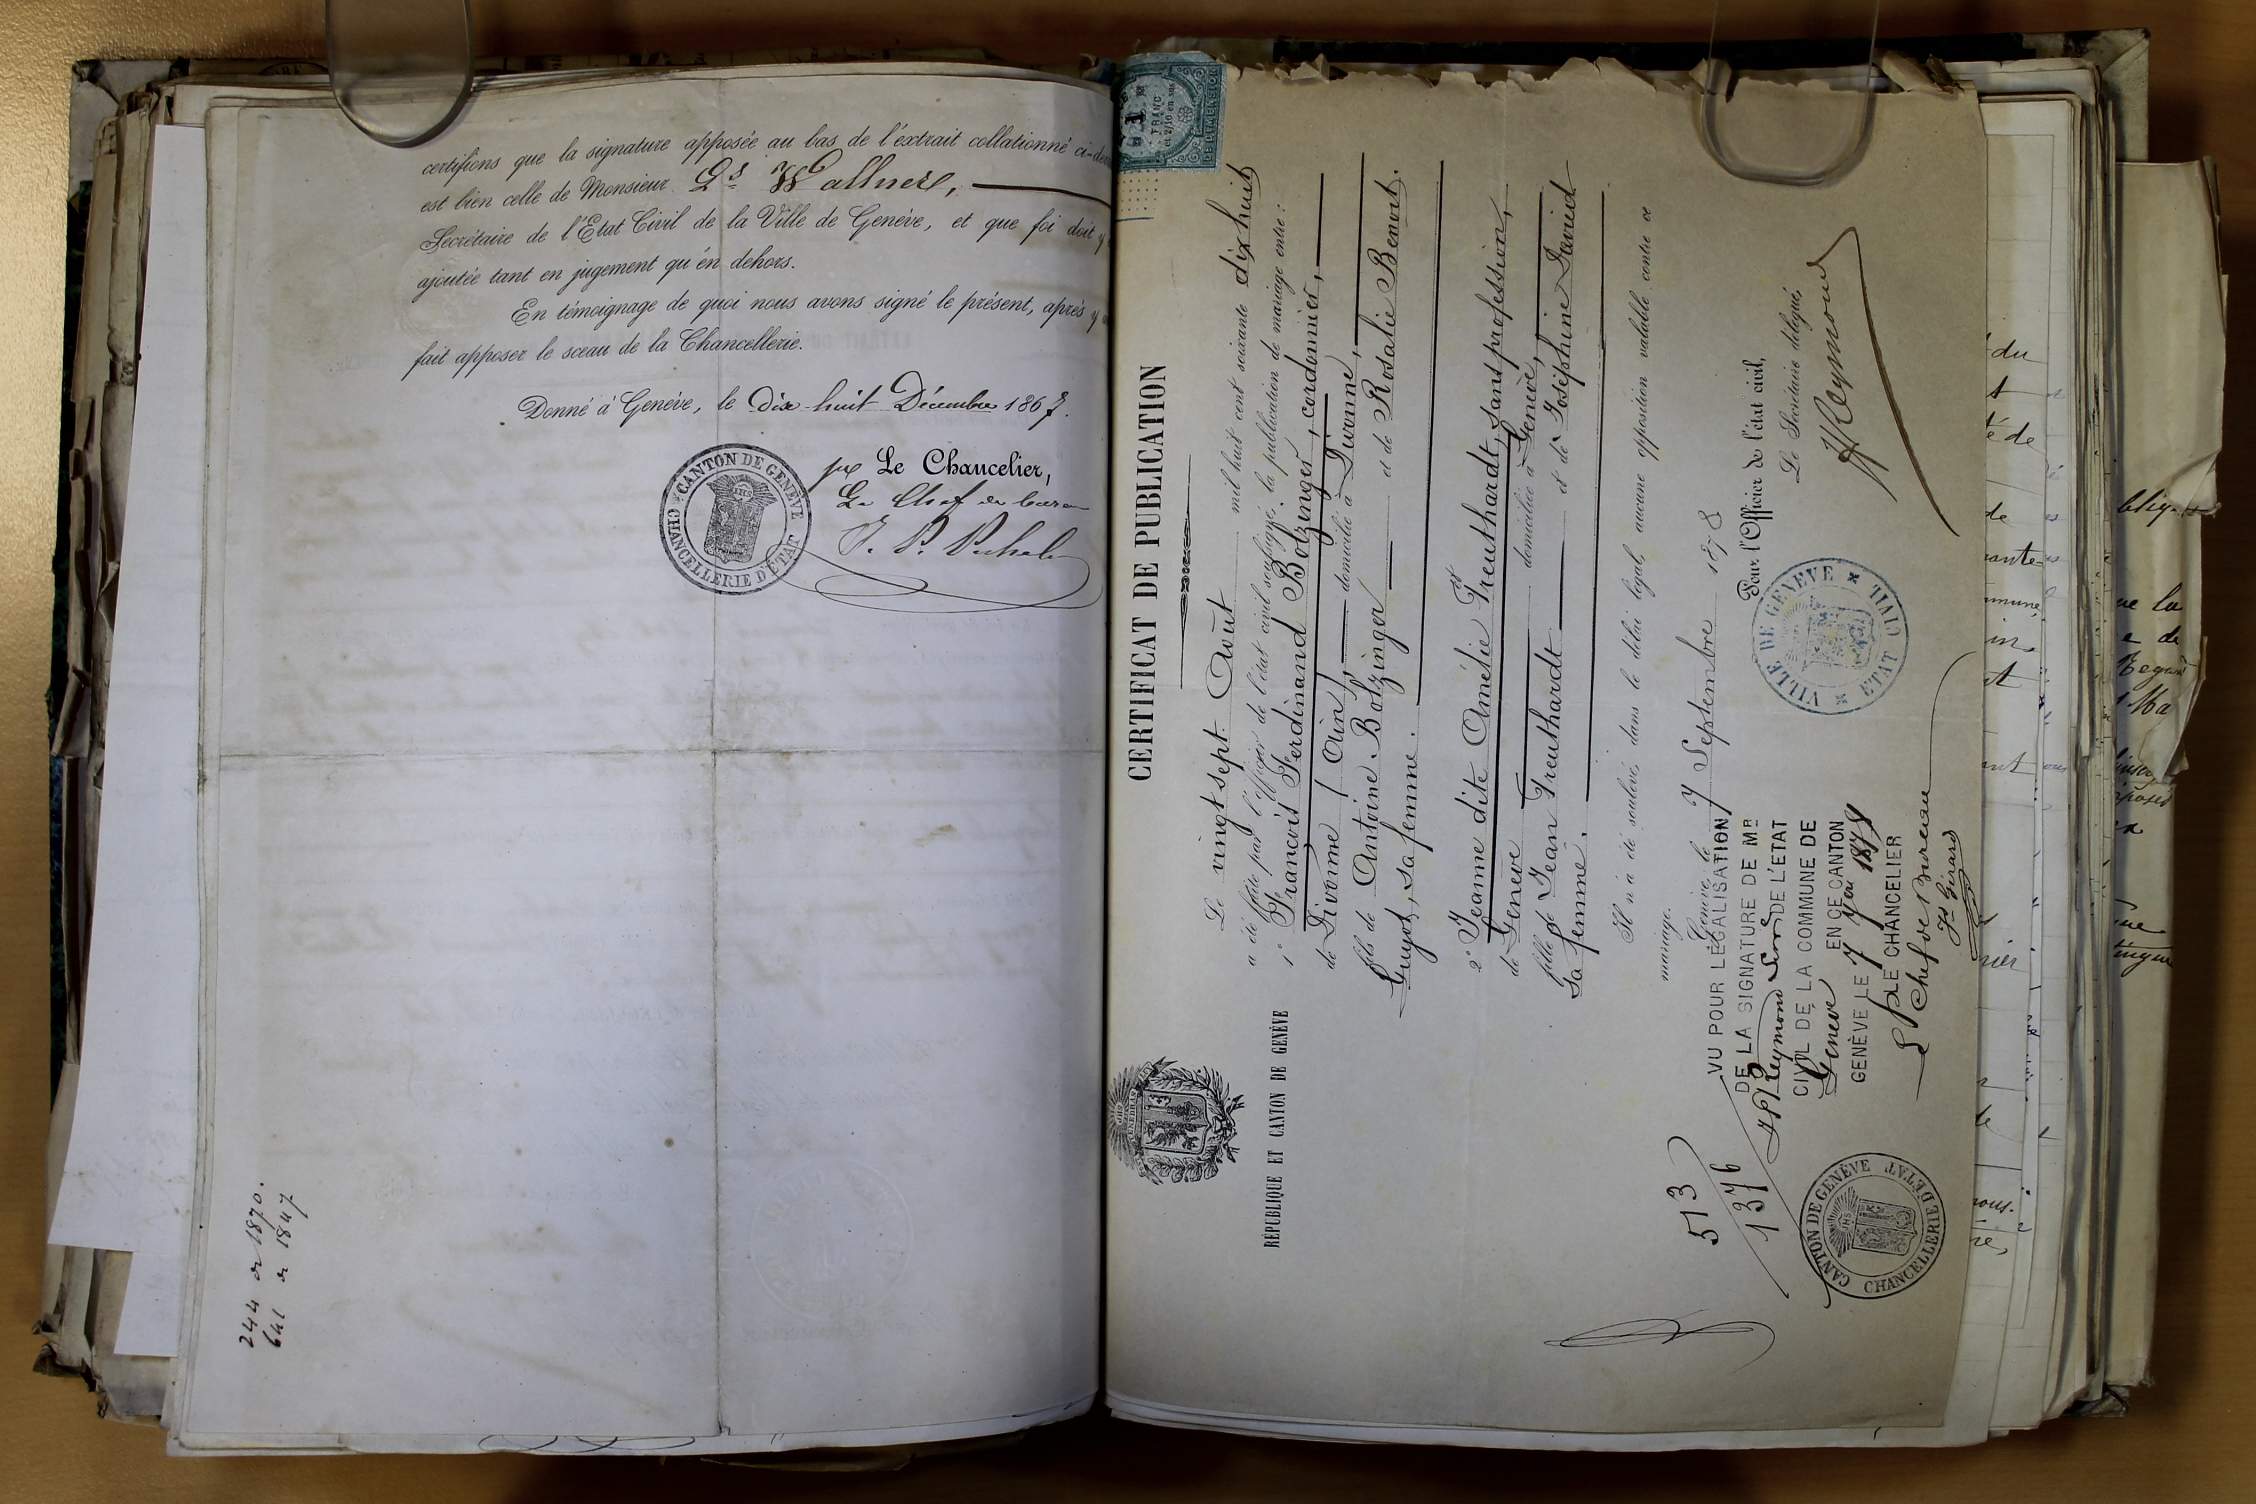 certifions que la signature apposée au bas de l'extrait collationné
est bien celle de Monsieur Gs Wallner,
Secrétaire de l'Etat Civil de la Ville de Genève, et que foi doit y
ajoutée tant en jugement qu'en dehors.
En témoignage de quoi nous avons signé le présent, après y
fait apposer le sceau de la Chancellerie.
Donné à Genève, le dix-huit Décembre 1867.
pr Le Chancelier,
Le Chef de bureau
CANTON DE GENÈVE
CHANCELLERIE D'ETAT
244 de 1870.
641 de 1847
1
FRANC
et 2/10 en sus
DIMENSION
REPUBLIQUE ET CANTON DE GENÈVE
CERTIFICAT DE PUBLICATION
Le vingt sept Août mil huit cent soixante dix huit
a été faite par l'officier de l'état civil soussigné, la publication de mariage entre :
1° François Ferdinand Bolzinger, cordonnier,
de Divonne (Ain), domicilié à Divonne,
fils de Antoine Bolzinger et de Rosalie Benoit
Guyot, sa femme.
Et
2° Jeanne dite Amélie Treuthardt, sans profession,
de Genève domiciliée à Genève,
fille de Jean Treuthardt et de Joséphine David
sa femme.
Il n'a été soulevé, dans le délai légal, aucune opposition valable contre ce
mariage.
Genève, le 7 Septembre 1878
Pour l'Officier de l'état civil,
Le Secrétaire délégué,
Reymond
VILLE DE GENEVE
ETAT CIVIL
VU POUR LÉGALISATION
DE LA SIGNATURE DE MR
Reymond Secr DE L'ETAT
CIVIL DE LA COMMUNE DE
Genève EN CE CANTON
GENÈVE LE 7 7bre 1878
P LE CHANCELIER
Le Chef de Bureau
Girard
513
1376
CANTON DE GENÈVE
CHANCELLERIE D'ETAT